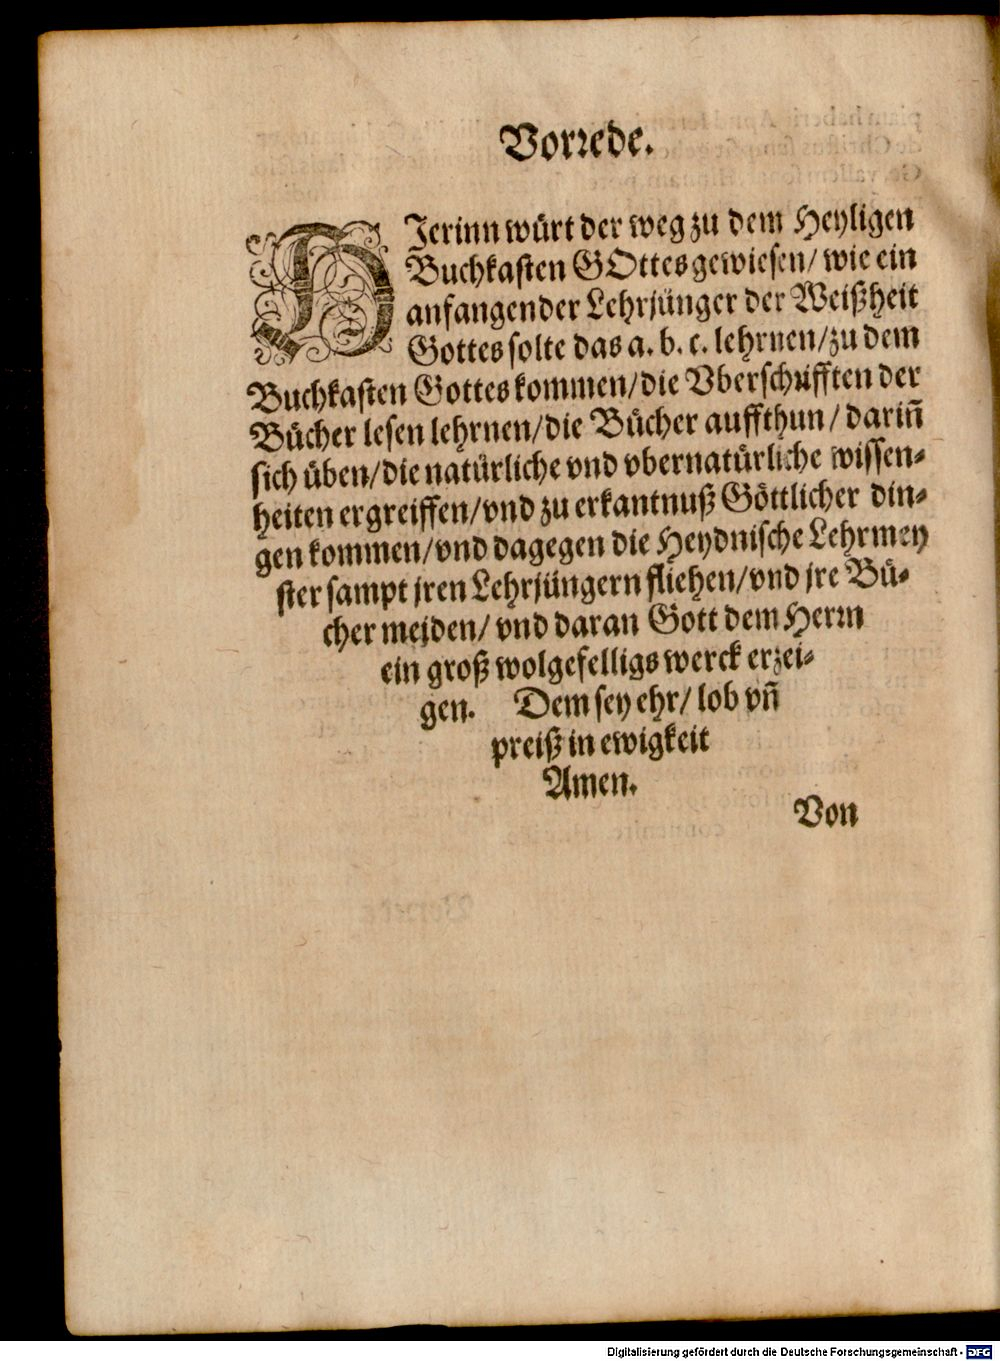 Vorrede.
HJerinn würt der weg zu dem Heyligen
Buchkasten GOttes gewiesen/ wie ein
anfangender Lehrjünger der Weißheit
Gottes solte das a. b. c. lehrnen/zu dem
Buchkasten Gottes kommen/die Vberschrifften der
Bücher lesen lehrnen/die Bücher auffthun/ dariñ
sich üben/die natürliche vnd vbernatürliche wissen-
heiten ergreiffen/vnd zu erkantnuß Göttlicher din-
gen kommen/vnd dagegen die Heydnische Lehrmey
ster sampt jren Lehrjüngern fliehen/vnd jre Bü-
cher meiden/ vnd daran Gott dem Herrn
ein groß wolgefelligs werck erzei-
gen. Dem sey ehr/ lob vñ
preiß in ewigkeit
Amen.
Von
Digitalisierung gefördert durch die Deutsche Forschungsgemeinschaft - DFG